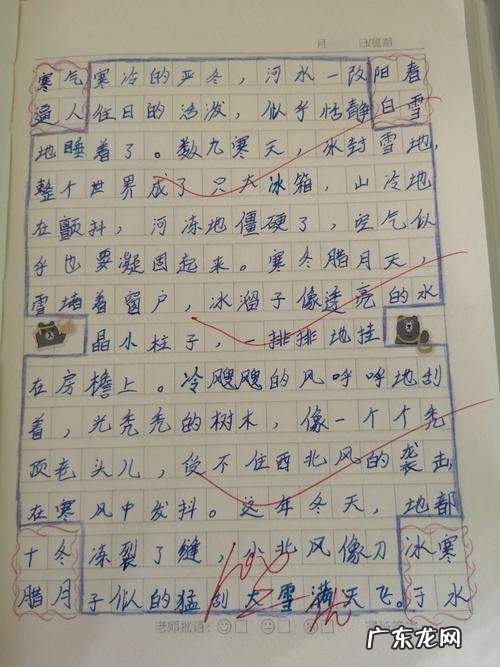 月 日/星期
寒气 寒冷的严冬，河水一改 阳春
逼人 往日的活泼，似乎恬静 白雪
地睡着了。数九寒天，冰封雪地，
整个世界成了只大冰箱，山冷地
在颤抖，河冻地僵硬了，空气似
乎也要凝固起来。寒冬腊月天，
雪堵着窗户，冰溜子像透亮的水
晶小柱子，一排排地挂
在房檐上。冷飕飕的风呼呼地刮
着，光秃秃的树木，像一个个秃
顶老头儿，受不住西北风的袭击，
在寒风中发抖。这年冬天，地都
十冬 冻裂了缝，小北风像刀 冰寒
腊月 子似的猛刮大雪满天飞。于水
老师批语：
广东龙网